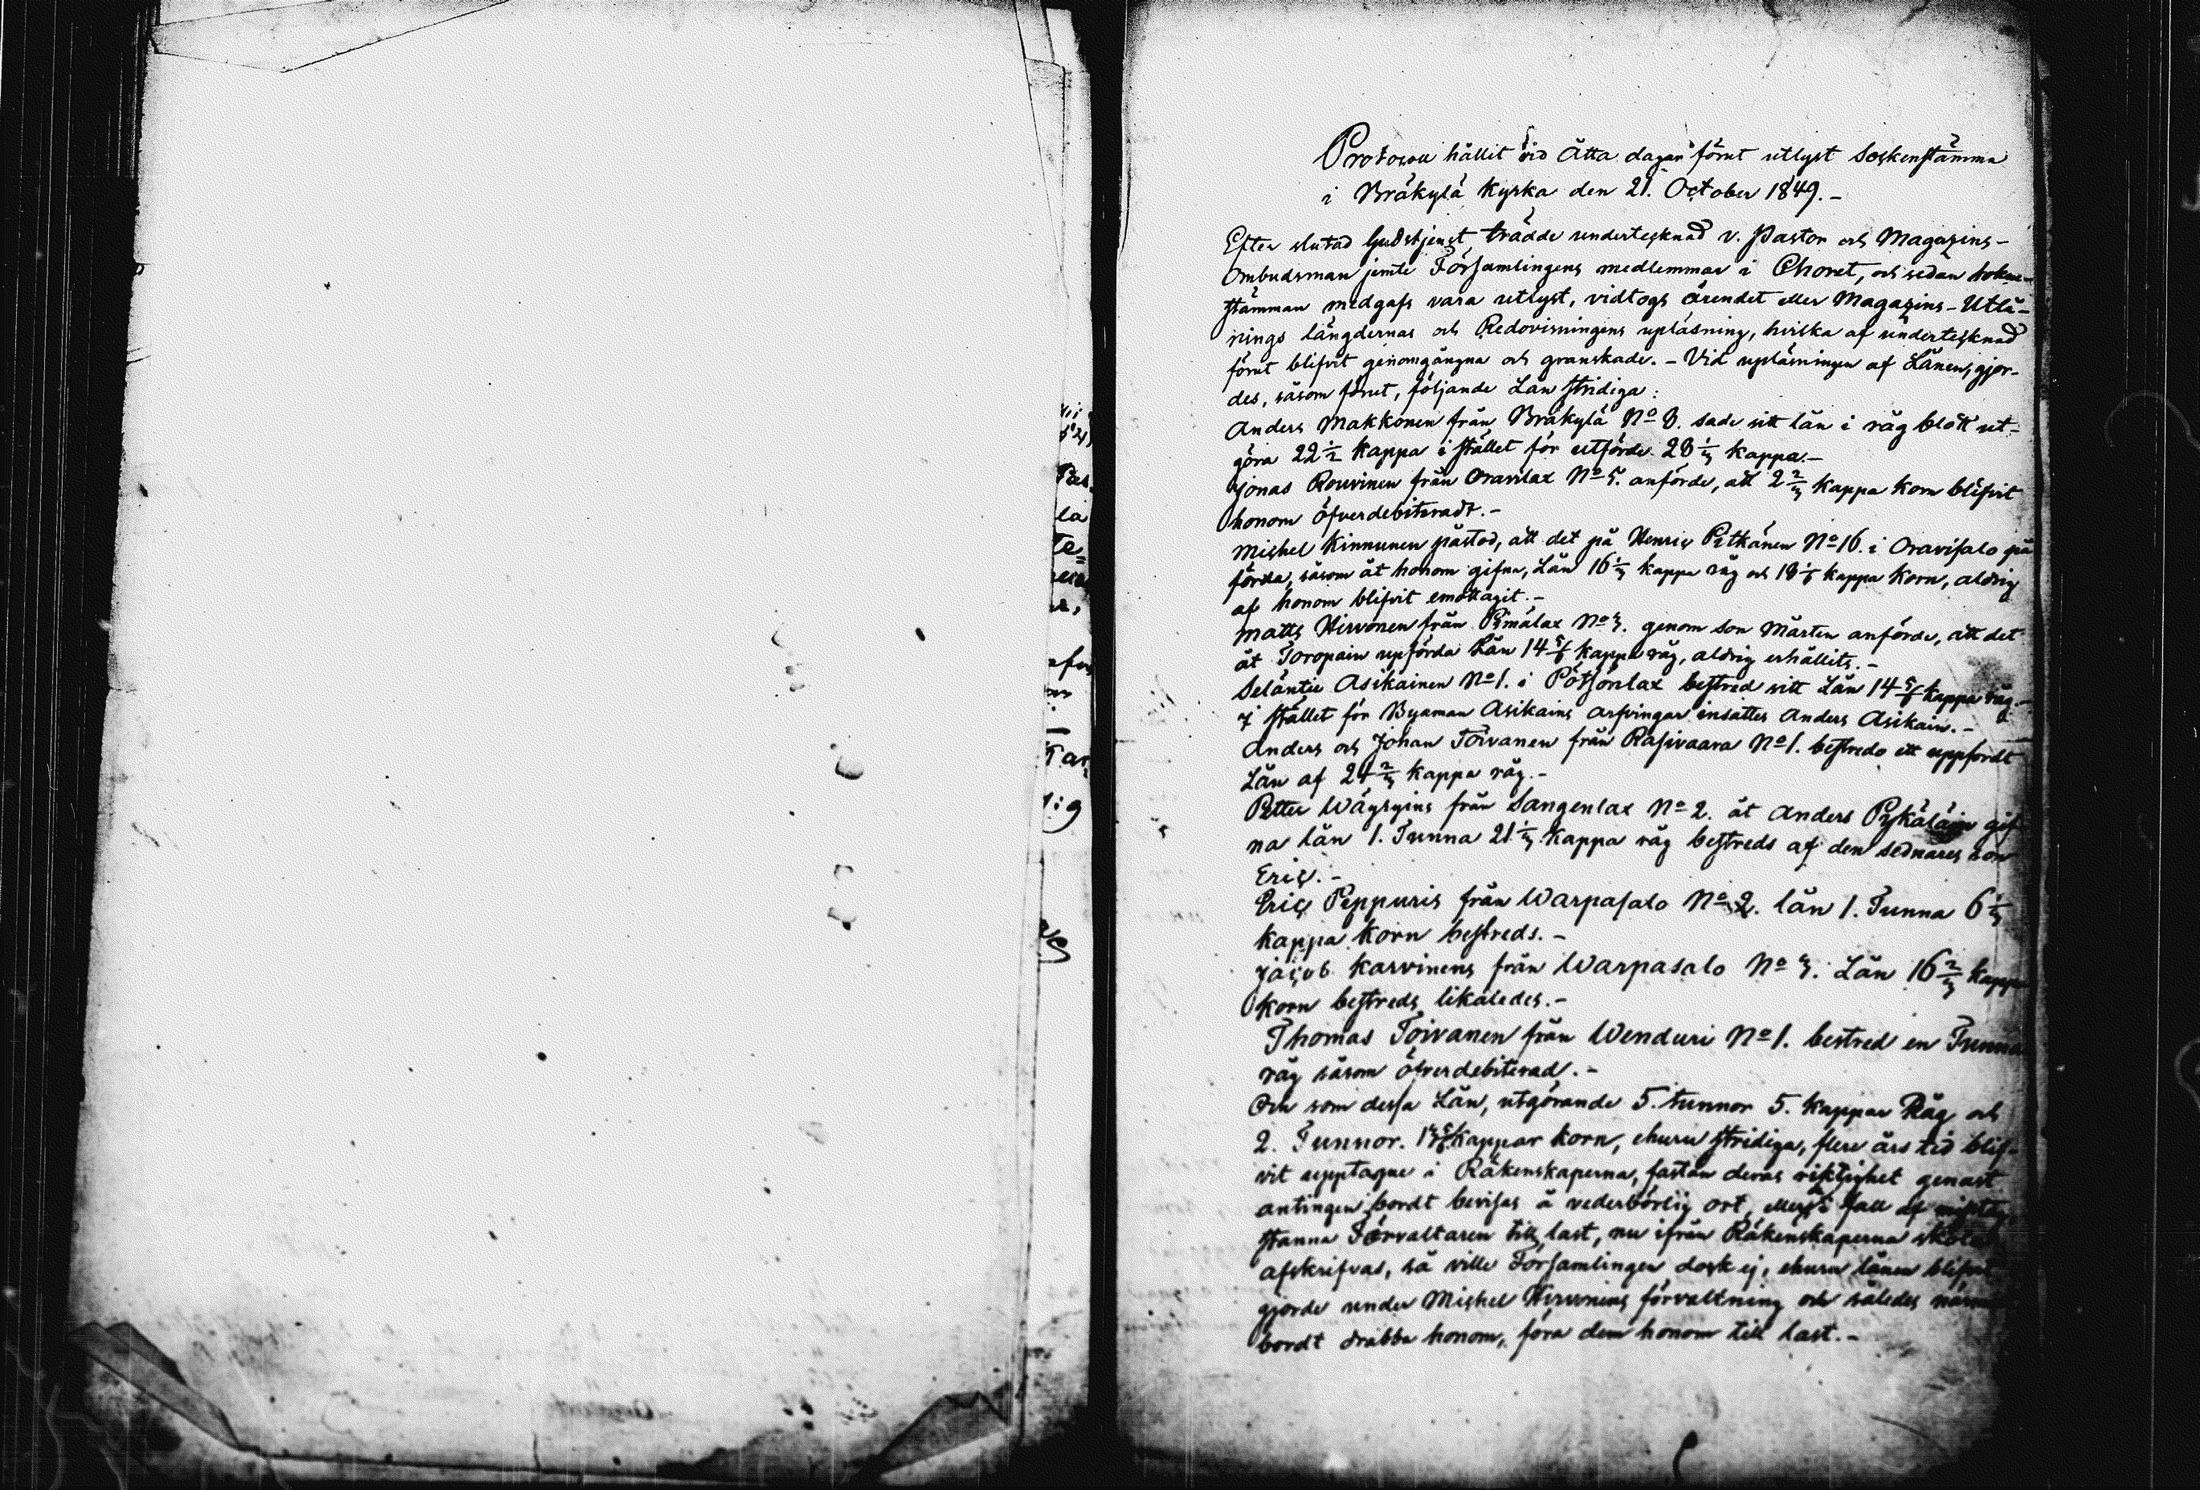 Protocoll hållit vid Åtta dagar förut utlyst Sockenstämma
i Bräkylä Kyrka den 21. October 1849.-
Efter slutad Gudstjenst trädde undertecknad v. Pastor och Magazins-
Ombudsman jemte Församlingens medlemmar i Choret, och sedan socken-
stämman medgafs vara utlyst, vidtogs ärendet eller Magazins-Utlå-
nings längdernas och Redovisningens upläsning, hvilka af undertecknad
förut blifvit genomgångna och granskade.- Vid upläsningen af Lånen, gjor-
des, såsom förut, följande Lån stridiga:
Anders Makkonen från Bräkylä No 3. sade sitt lån i råg blott ut-
göra 22 1/2 kappa i stället för utförde 23 1/3 kappa.-
Jonas Rouvinen från Oravilax No 5. anförde, att 2 2/3 kappa korn blifvit
honom öfverdebiteradt.-
Michel Kinnunen påstod, att det på Henric Pitkänen No 16. i Oravisalo på
förda, såsom åt honom gifna, Lån 16 1/3 kappa råg och 18 1/6 kappa korn, aldrig
af honom blifvit emottagit.-
Matts Hirvonen från Pimälax No 3. genom son Mårten anförde, att det
åt Toropain upförda Lån 14 5/6 kappa råg, aldrig erhållits.-
Seläntie Asikainen No 1. i Pötsönlax bestred sitt Lån 14 5/6 kappa råg.-
I stället för Byaman Asikains arfvingar insattes Anders Asikain.-
Anders och Johan Toivanen från Rasivaara No 1. bestredo ett uppfördt
Lån af 24 2/3 kappa råg.-
Petter Wäyrynins från Sangenlax No 2. åt Anders Pykäläin gif
na lån 1. Tunna 21 1/3 kappa råg bestreds af den sednares son
Eric.-
Eric Peppuris från Warpasalo No 2. lån 1. Tunna 6 1/3
kappa korn bestreds.-
Jacob Karvinens från Warpasalo No 3. Lån 16 2/3 kappa
korn bestreds likaledes.-
Thomas Toivanen från Wenduri No 1. bestred en Tunna
råg såsom öfverdebiterad.-
Och som dessa Lån, utgörande 5. tunnor 5. kappar Råg och
2. Tunnor. kappar korn, ehuru stridiga, flere års tid blif-
vit upptagne i Räkenskaperna, fastän deras riktighet genast
antingen bordt bevisas å vederbörlig ort, eller i fall af
stanna Förvaltaren till last, nu ifrån Räkenskaperna skola
afskrifvas, så ville Församlingen dock ej, ehuru lånen blifvit
gjorde under Michel Hirvonens förvaltning och således
bordt drabba honom, föra dem honom till last.-